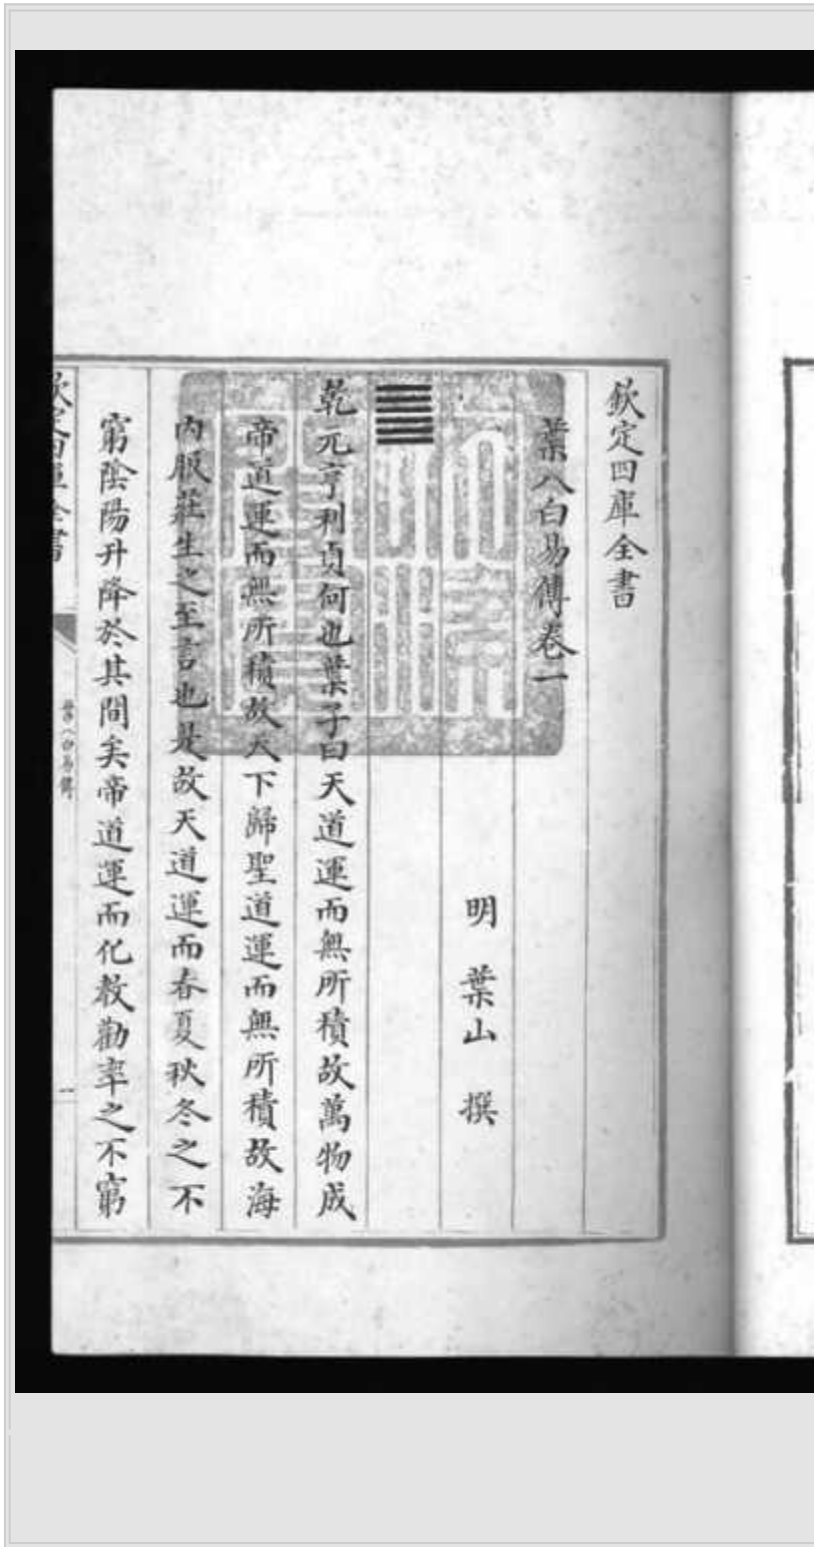 欽定四庫全書
葉八白易傳卷一
明 葉山 撰
䷀
乾元亨利貞何也葉子曰天道運而無所積故萬物成
帝道運而無所積故天下歸聖道運而無所積故海
内服莊生之至言也是故天道運而春夏秋冬之不
窮陰陽升降於其間矣帝道運而化教勸率之不窮
欽定四庫全書
葉八白易傳
一